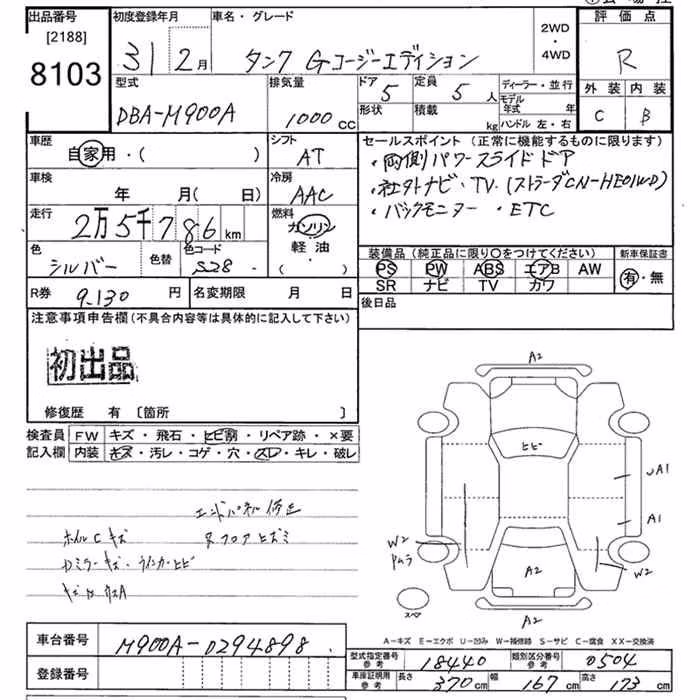 出品番号 初度登録年月 車名・グレード 2WD ・ 4WD 評価点
[2188]
8103
31 2月 タンク Gコージーエディション R
型式 排気量 ドア 5 定員 5人 ディーラー・並行 外装 内装
DBA-M900A 1000cc 形状 積載 kg モデル年式 年 ハンドル 左・右 C B
車歴 シフト セールスポイント(正常に機能するものに限ります)
自家用・( ) AT ・両側パワースライドドア
車検 冷房 ・社外ナビ・TV.(ストラーダCN-HE01WD)
年 月(日) AAC ・バックモニター ・ETC
走行 2万5千786km 燃料 ガソリン
軽油・( )
色 シルバー 色替 色コード S28
装備品(純正品に限り○をつけてください) 新車保証書
PS PW ABS エアB AW 有・無
SR ナビ TV カワ
R券 9.130円 名変期限 月 日 後日品
注意事項申告欄(不具合内容等は具体的に記入して下さい)
初出品
修復歴 有 〔箇所 〕
検査員 FW キズ・飛石・ヒビ割・リペア跡・×要
記入欄 内装 キズ・汚レ・コゲ・穴・スレ・キレ・破レ
エンドパネル修正
ホイルCキズ Rフロアヒズミ
Dミラーキズ・ウインカーヒビ
A2
ヒビ
UA1
A1
W2
Pムラ
W2
A2
スペア
A2
車台番号 M900A-0294898
A-キズ E-エクボ U-凹み W-補修跡 S-サビ C-腐食 XX-交換済
登録番号
型式指定番号 参考 18440 類別区分番号 参考 0504
車検証明用 参考 長さ 370cm 幅 167cm 高さ 173cm